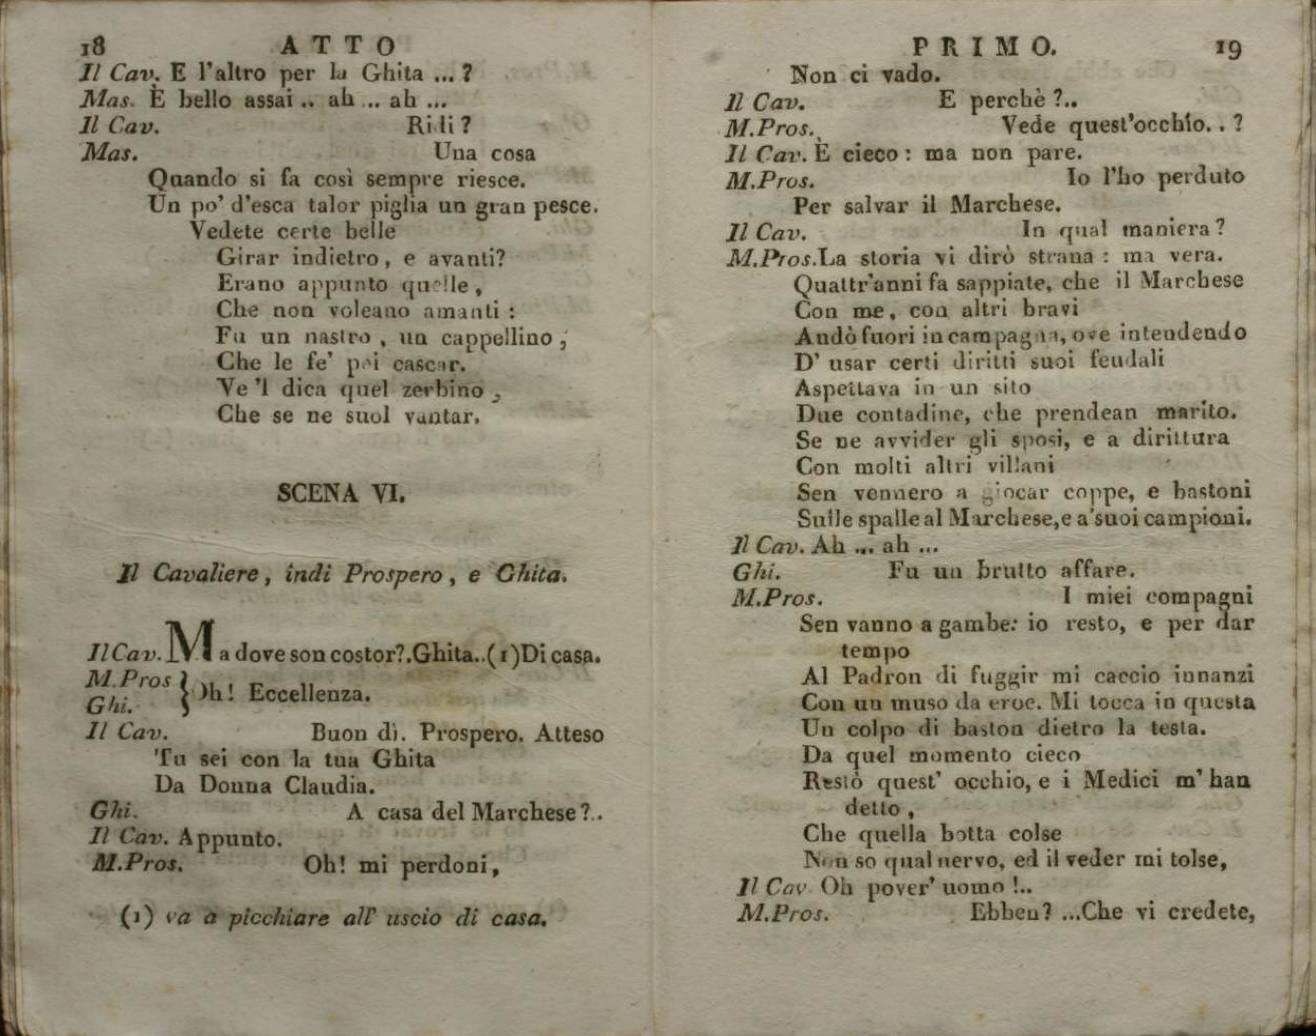 18 ATTO
Il Cav. E l'altro per la Ghita ... ?
Mas. È bello assai .. ah ... ah ...
Il Cav. Ridi ?
Mas. Una cosa
Quando si fa così sempre riesce.
Un po' d'esca talor piglia un gran pesce.
Vedete certe belle
Girar indietro, e avanti?
Erano appunto quelle,
Che non voleano amanti :
Fu un nastro, un cappellino ;
Che le fe' poi cascar.
Ve 'l dica quel zerbino,
Che se ne suol vantar.
SCENA VI.
Il Cavaliere, indi Prospero, e Ghita.
Il Cav. Ma dove son costor?.Ghita..(1)Di casa.
M.Pros
Ghi. } Oh! Eccellenza.
Il Cav. Buon dì. Prospero. Atteso
Tu sei con la tua Ghita
Da Donna Claudia.
Ghi. A casa del Marchese ?..
Il Cav. Appunto.
M.Pros. Oh! mi perdoni,
(1) va a picchiare all' uscio di casa.
PRIMO. 19
Non ci vado.
Il Cav. E perchè ?..
M.Pros. Vede quest'occhio.. ?
Il Cav. È cieco : ma non pare.
M.Pros. Io l'ho perduto
Per salvar il Marchese.
Il Cav. In qual maniera ?
M.Pros.La storia vi dirò strana : ma vera.
Quattr'anni fa sappiate, che il Marchese
Con me, con altri bravi
Andò fuori in campagna, ove intendendo
D' usar certi diritti suoi feudali
Aspettava in un sito
Due contadine, che prendean marito.
Se ne avvider gli sposi, e a dirittura
Con molti altri villani
Sen vennero a giocar coppe, e bastoni
Sulle spalle al Marchese,e a'suoi campioni.
Il Cav. Ah ... ah ...
Ghi. Fu un brutto affare.
M.Pros. I miei compagni
Sen vanno a gambe: io resto, e per dar
tempo
Al Padron di fuggir mi caccio innanzi
Con un muso da eroe. Mi tocca in questa
Un colpo di baston dietro la testa.
Da quel momento cieco
Restò quest' occhio, e i Medici m' han
detto,
Che quella botta colse
Non so qual nervo, ed il veder mi tolse,
Il Cav Oh pover' uomo !..
M.Pros. Ebben? ...Che vi credete,